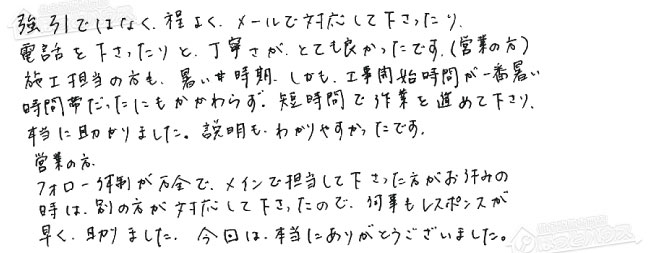 強引ではなく、程よく、メールで対応して下さったり、
電話を下さったりと、丁寧さが、とても良かったです。(営業の方)
施工担当の方も、暑い時期、しかも、工事開始時間が一番暑い
時間帯だったにもかかわらず、短時間で作業を進めて下さり、
本当に助かりました。説明も、わかりやすかったです。
営業の方、
フォロー体制が万全で、メインで担当して下さった方がお休みの
時は、別の方が対応して下さったので、何事もレスポンスが
早く、助りました。今回は、本当にありがとうございました。